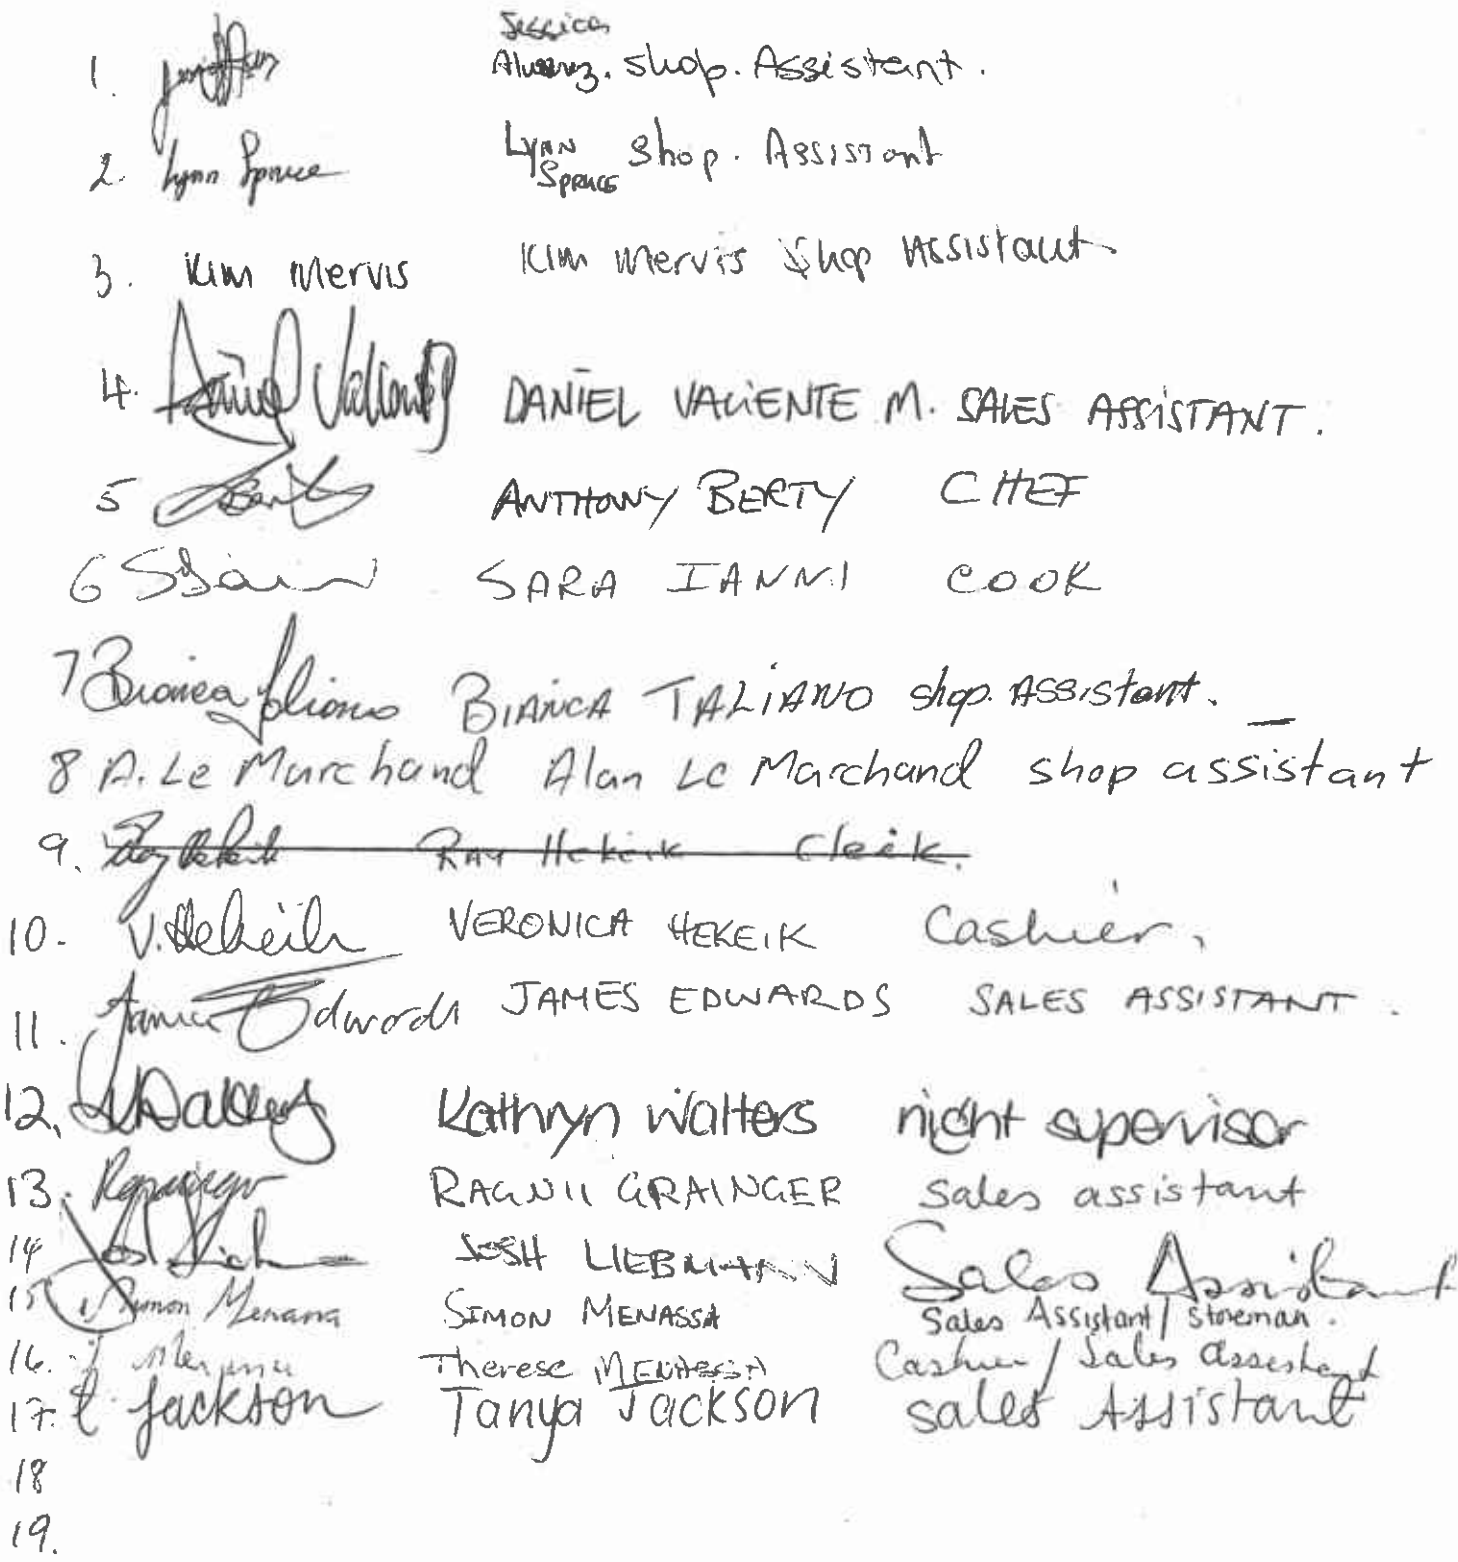 1. Jessica Alvarez. shop. Assistant.
2. Lynn Spruce LYNN SPRUCE shop. Assistant
3. Kim Mervis Kim Mervis Shop Assistant
4. Daniel Valiente DANIEL VALIENTE M. SALES ASSISTANT.
5 ANTHONY BERTY CHEF
6 SARA IANNI COOK
7 Bianca Taliano BIANCA TALIANO shop. Assistant.
8 A. Le Marchand Alan Le Marchand shop assistant
9. Ray Hekeik RAY Hekeik Clerk.
10. V. Hekeik VERONICA HEKEIK Cashier.
11. James Edwards JAMES EDWARDS SALES ASSISTANT.
12. Kathryn Walters night supervisor
13. RAGNII GRAINGER sales assistant
14 JOSH LIEBMANN Sales Assistant
15 Simon Menassa SIMON MENASSA Sales Assistant / storeman.
16. Therese MENASSA Cashier / Sales assistant
17. t. Jackson Tanya Jackson sales Assistant
18
19.